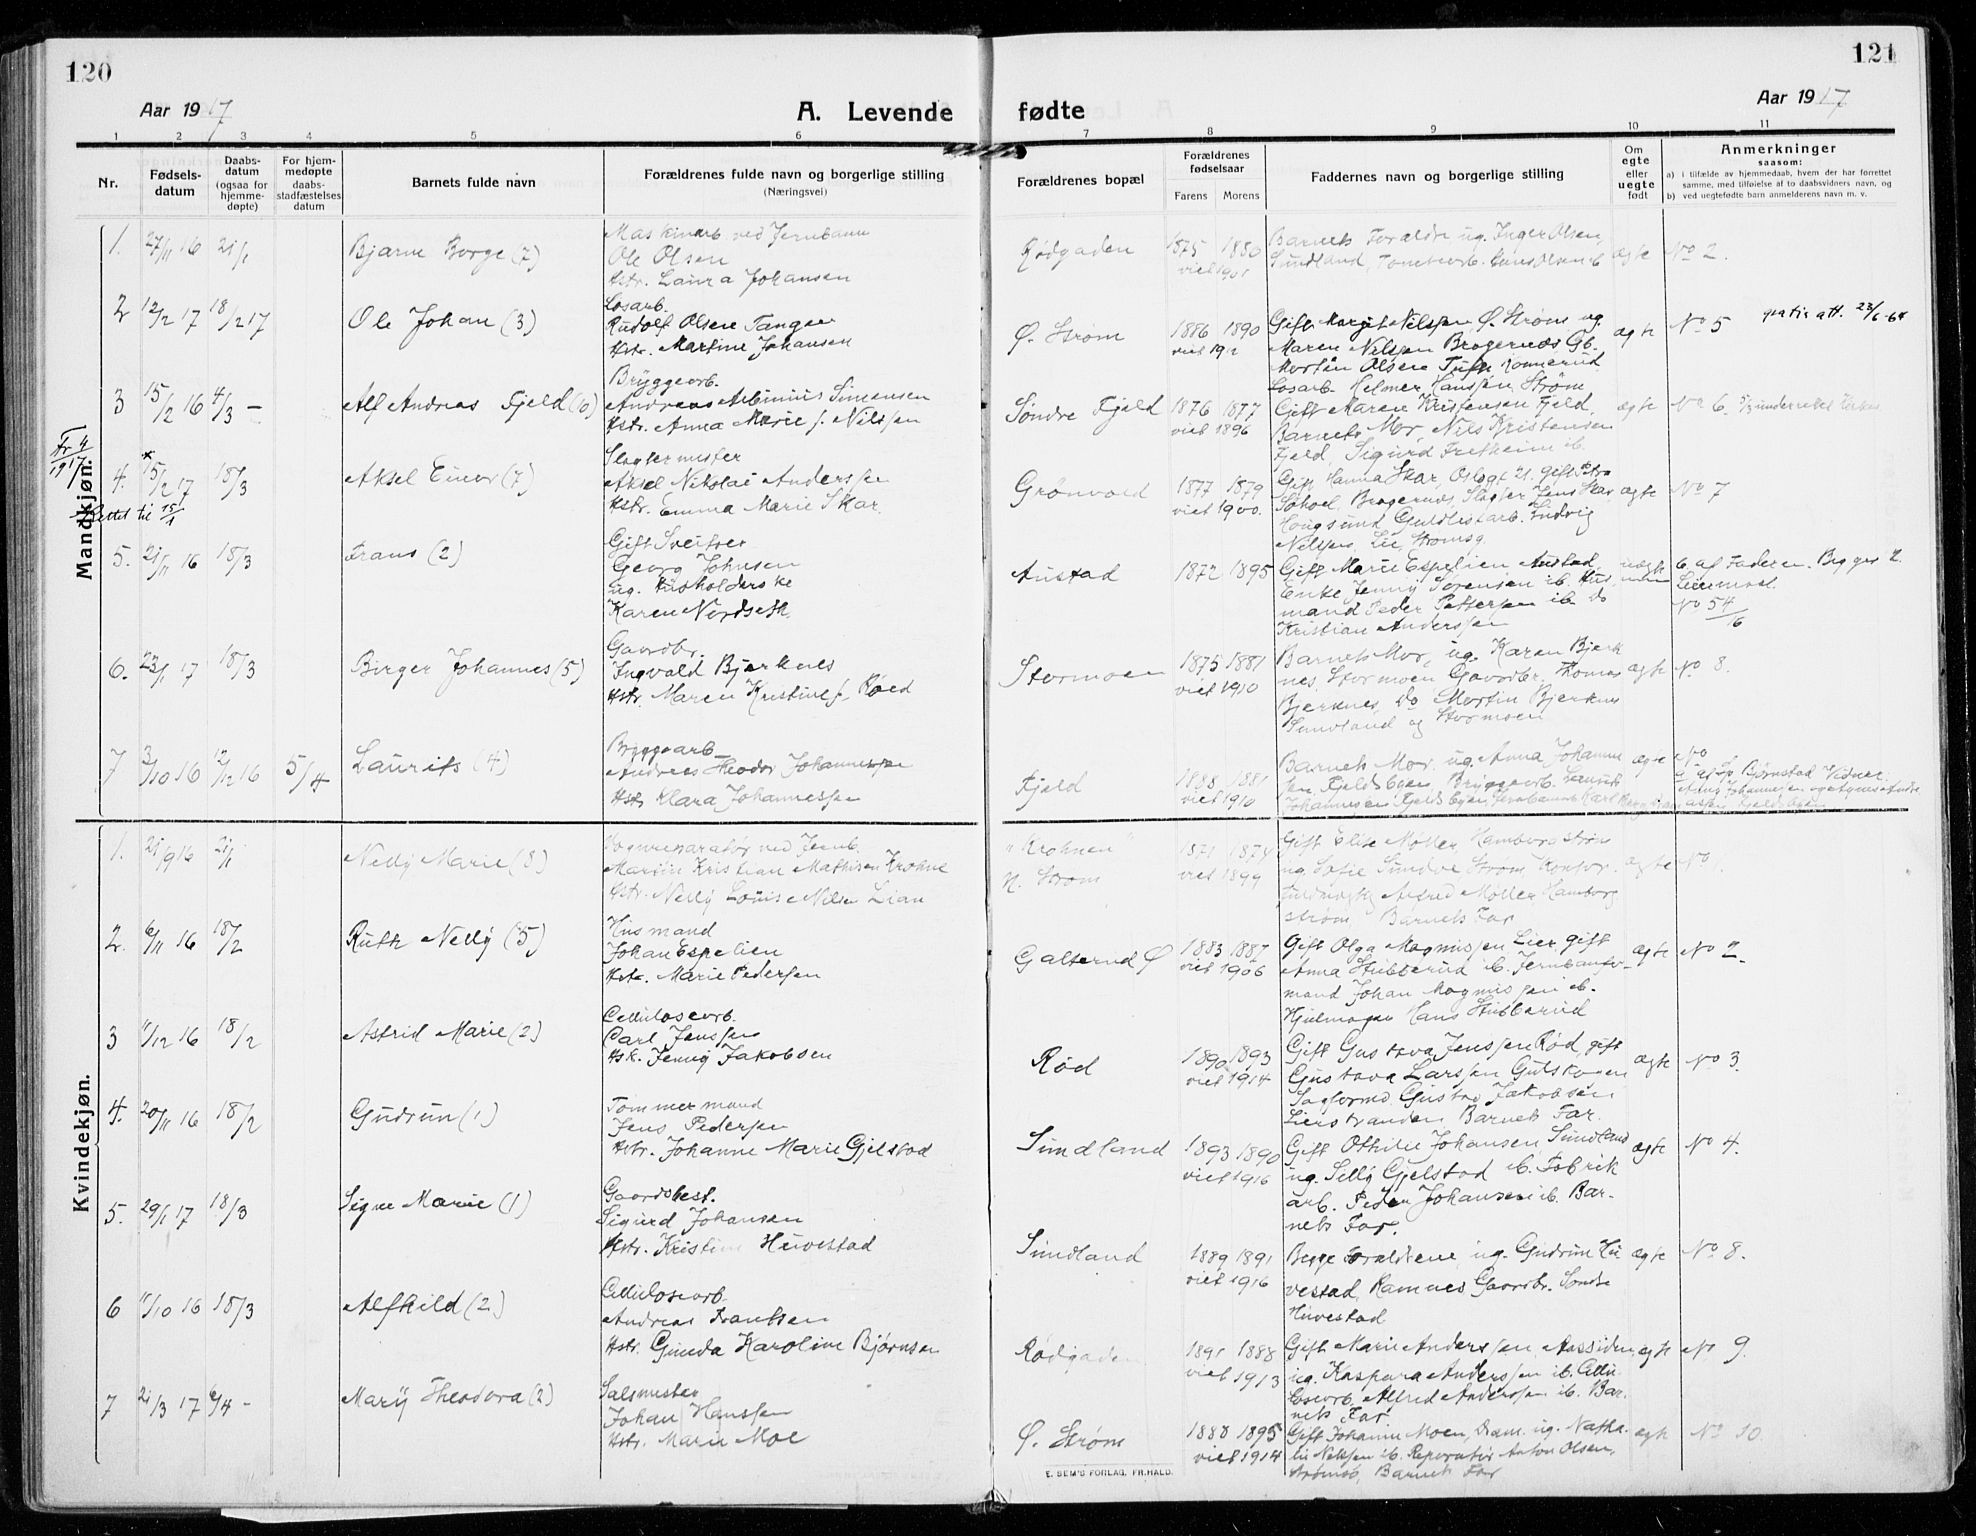 120
121
Aar 1917
A. Levende fødte
Aar 1917
1 2 3 4 5 6 7 8 9 10 11
Nr.
Fødsels-
datum
Daabs-
datum
(ogsaa for
hjemme-
døpte)
For hjem-
medøpte
daabs-
stadfæstelses
datum
Barnets fulde navn
Forældrenes fulde navn og borgerlige stilling
(Næringsvei)
Forældrenes bopæl
Forældrenes
fødselsaar
Farens Morens
Faddernes navn og borgerlige stilling
Om
egte
eller
uegte
født
Anmerkninger
saasom:
a) i tilfælde av hjemmedaab, hvem der har forrettet
samme, med tilføielse af to daabsvidners navn, og
b) ved uegtefødte barn anmelderens navn m. v.
Mandkjøn.
1. 27/11 16 21/1
Bjarne Borge (7)
Maskinarb ved Jernbanen
Ole Olsen
Hstr. Laura Johansen
Rødgaden
1875 1880
viet 1901
Barnets Foraldre ug. Inger Olsen,
Sundland, Tomtearb. Hans Olsen ib
ægte
No 2.
2 12/2 17 18/2 17
Ole Johan (3)
Losarb.
Rudolf Olsen Tangen
Hstr. Martine Johansen
Ø. Strøm
1886 1890
viet 191
Gift Margit Nilssen Ø. Strøm ug.
Maren Nilssen Bragernes Gb.
Morten Olsen Tufte Konnerud
Losarb. Helmer Hanssen Strøm
ægte
No 5
gratis att. 23/6-64
3 15/2 16 4/3 –
Alf Andreas Fjeld (6)
Bryggearb.
Andreas Arbinius Simensen
Hstr. Anna Marie f. Nilssen
Søndre Fjeld
1876 1877
viet 1896
Gift Maren Kristensen Fjeld,
Barnets Mor, Nils Kristensen
Fjeld, Sigurd Fretheim ib.
ægte
No 6.
Fr 4
1917
4. 15/2 17 18/3
Rettet til 15/1
Aksel Einar (7)
Slagtermester
Aksel Nikolai Anderssen
Hstr. Emma Marie Skar.
Grønvold
1877 1879
viet 1900.
Gift Hanna Skar, Oslogt 21. Gift
Bragernes, Slagter Jens Skar
Hougsund Guldlistarb. Ludvig
Nilsen, Lie, Strømsg.
ægte
No 7
5. 21/11 16 18/3
Frans (2)
Gift Sveitser
Georg Johnsen
ug. Husholderske
Karen Nordseth
Austad
1872 1895
Gift Marie Espelien Austad,
Enke Jenny Sørensen ib. Hus
mand Peder Pettersen ib Do
Kristian Anderssen
uægte
b af Faderen. Bygges
Liermoel.
No 54/16
6. 23/1 17 18/3
Birger Johannes (5)
Gaardbr.
Ingvald Bjerknes
Hstr. Maren Kristine f. Røed
Stormoen
1875 1881
viet 1910
Barnets Mor, ug. Karen Bjerk
nes Stormoen Gaardbr. Thomas
Bjerknes, Do Martin Bjerknes
Sundland og Stormoen
ægte
No 8.
7 3/10 16 12/12 16 5/4
Laurits (4)
Bryggearb
Andreas Theodor Johannessen
Hstr Klara Johannessen
Fjeld
1888 1881
viet 1910
Barnets Mor. ug. Anna Johannes
sen Fjeldsbyen Bryggearb. Laurits
Johannesen Fjeldsbyen
ægte
No
a af Sp. Bjørnstad Vidner.
Kvindekjøn.
1. 21/9 16 21/1
Nelly Marie (8)
Vognreparatør ved Jernb.
Martin Kristian Mathisen Krohne
Hstr. Nelly Louise Nilsen Lian
"Krohnen"
N. Strøm
1871 1874
viet 1899
Gift Elise Møller, Hamborgstrøm
ug. Sofie Sundve Strøm Kontor-
fuldmægtig Alfred Møller Hamborg
strøm Barnets Far
ægte
No 1.
2. 6/11 16 18/2
Ruth Nelly (5)
Husmand
Johan Espelien
Hstr. Marie Pedersen
Galterud Ø
1883 1887
viet 1906
Gift Olga Magnussen Lier gift
Anna Stubberud ib. Jernbanefor-
mand Johan Magnussen ib.
Hjulmager Hans Stubberud
ægte
No 2.
3 11/12 16 18/2
Astrid Marie (2)
Cellulosearb.
Carl Jenssen
Hstr. Jenny Jakobsen
Rød
1890 1893
viet 1914
Gift Gustava Jenssen Rød, gift
Gustava Larssen Gulskogen
Sagformd Gustav Jakobsen
Lierstranden Barnets Far.
ægte
No 3.
4. 20/11 16 18/2
Gudrun (1)
Tømmermand
Jens Pedersen
Hstr. Johanne Marie Gjelstad
Sundland
1893 1890
viet 1916
Gift Othilie Johansen Sundland
ug. Silly Gjelstad ib. Fabrik
arb. Peder Johansen ib. Bar-
nets Far.
ægte
No 4.
5. 29/1 17 18/3
Signe Marie (1)
Gaardsbest.
Sigurd Johansen
Hstr. Kristine Huvestad
Sundland
1889 1891
viet 1916
Begge Foraldrene, ug. Gudrun Hu
vestad, Ramnes Gaardbr. Søndre
Huvestad
ægte
No 8.
6 11/10 16 18/3
Alfhild (2)
Cellulosearb.
Andreas Frantsen
Hstr. Gunda Karoline Bjørnsen
Rødgaden
1891 1888
viet 1913
Gift Marie Anderssen, Aassiden,
ug. Kaspara Anderssen ib. Cellu
losearb. Alfred Anderssen ib. Bar-
nets Far
ægte
No 9.
7 21/3 17 6/4 –
Mary Theodora (2)
Salsmester
Johan Hanssen
Hstr. Marie Moe
Ø. Strøm
1888 1895
viet 1914
Gift Johanne Moen, Dram. ug. Natha-
lie Nilssen ib. Reparatør Anton Olsen,
Strømsø, Barnets Far
ægte
No 10.
E. SEM'S FORLAG, FR.HALD.